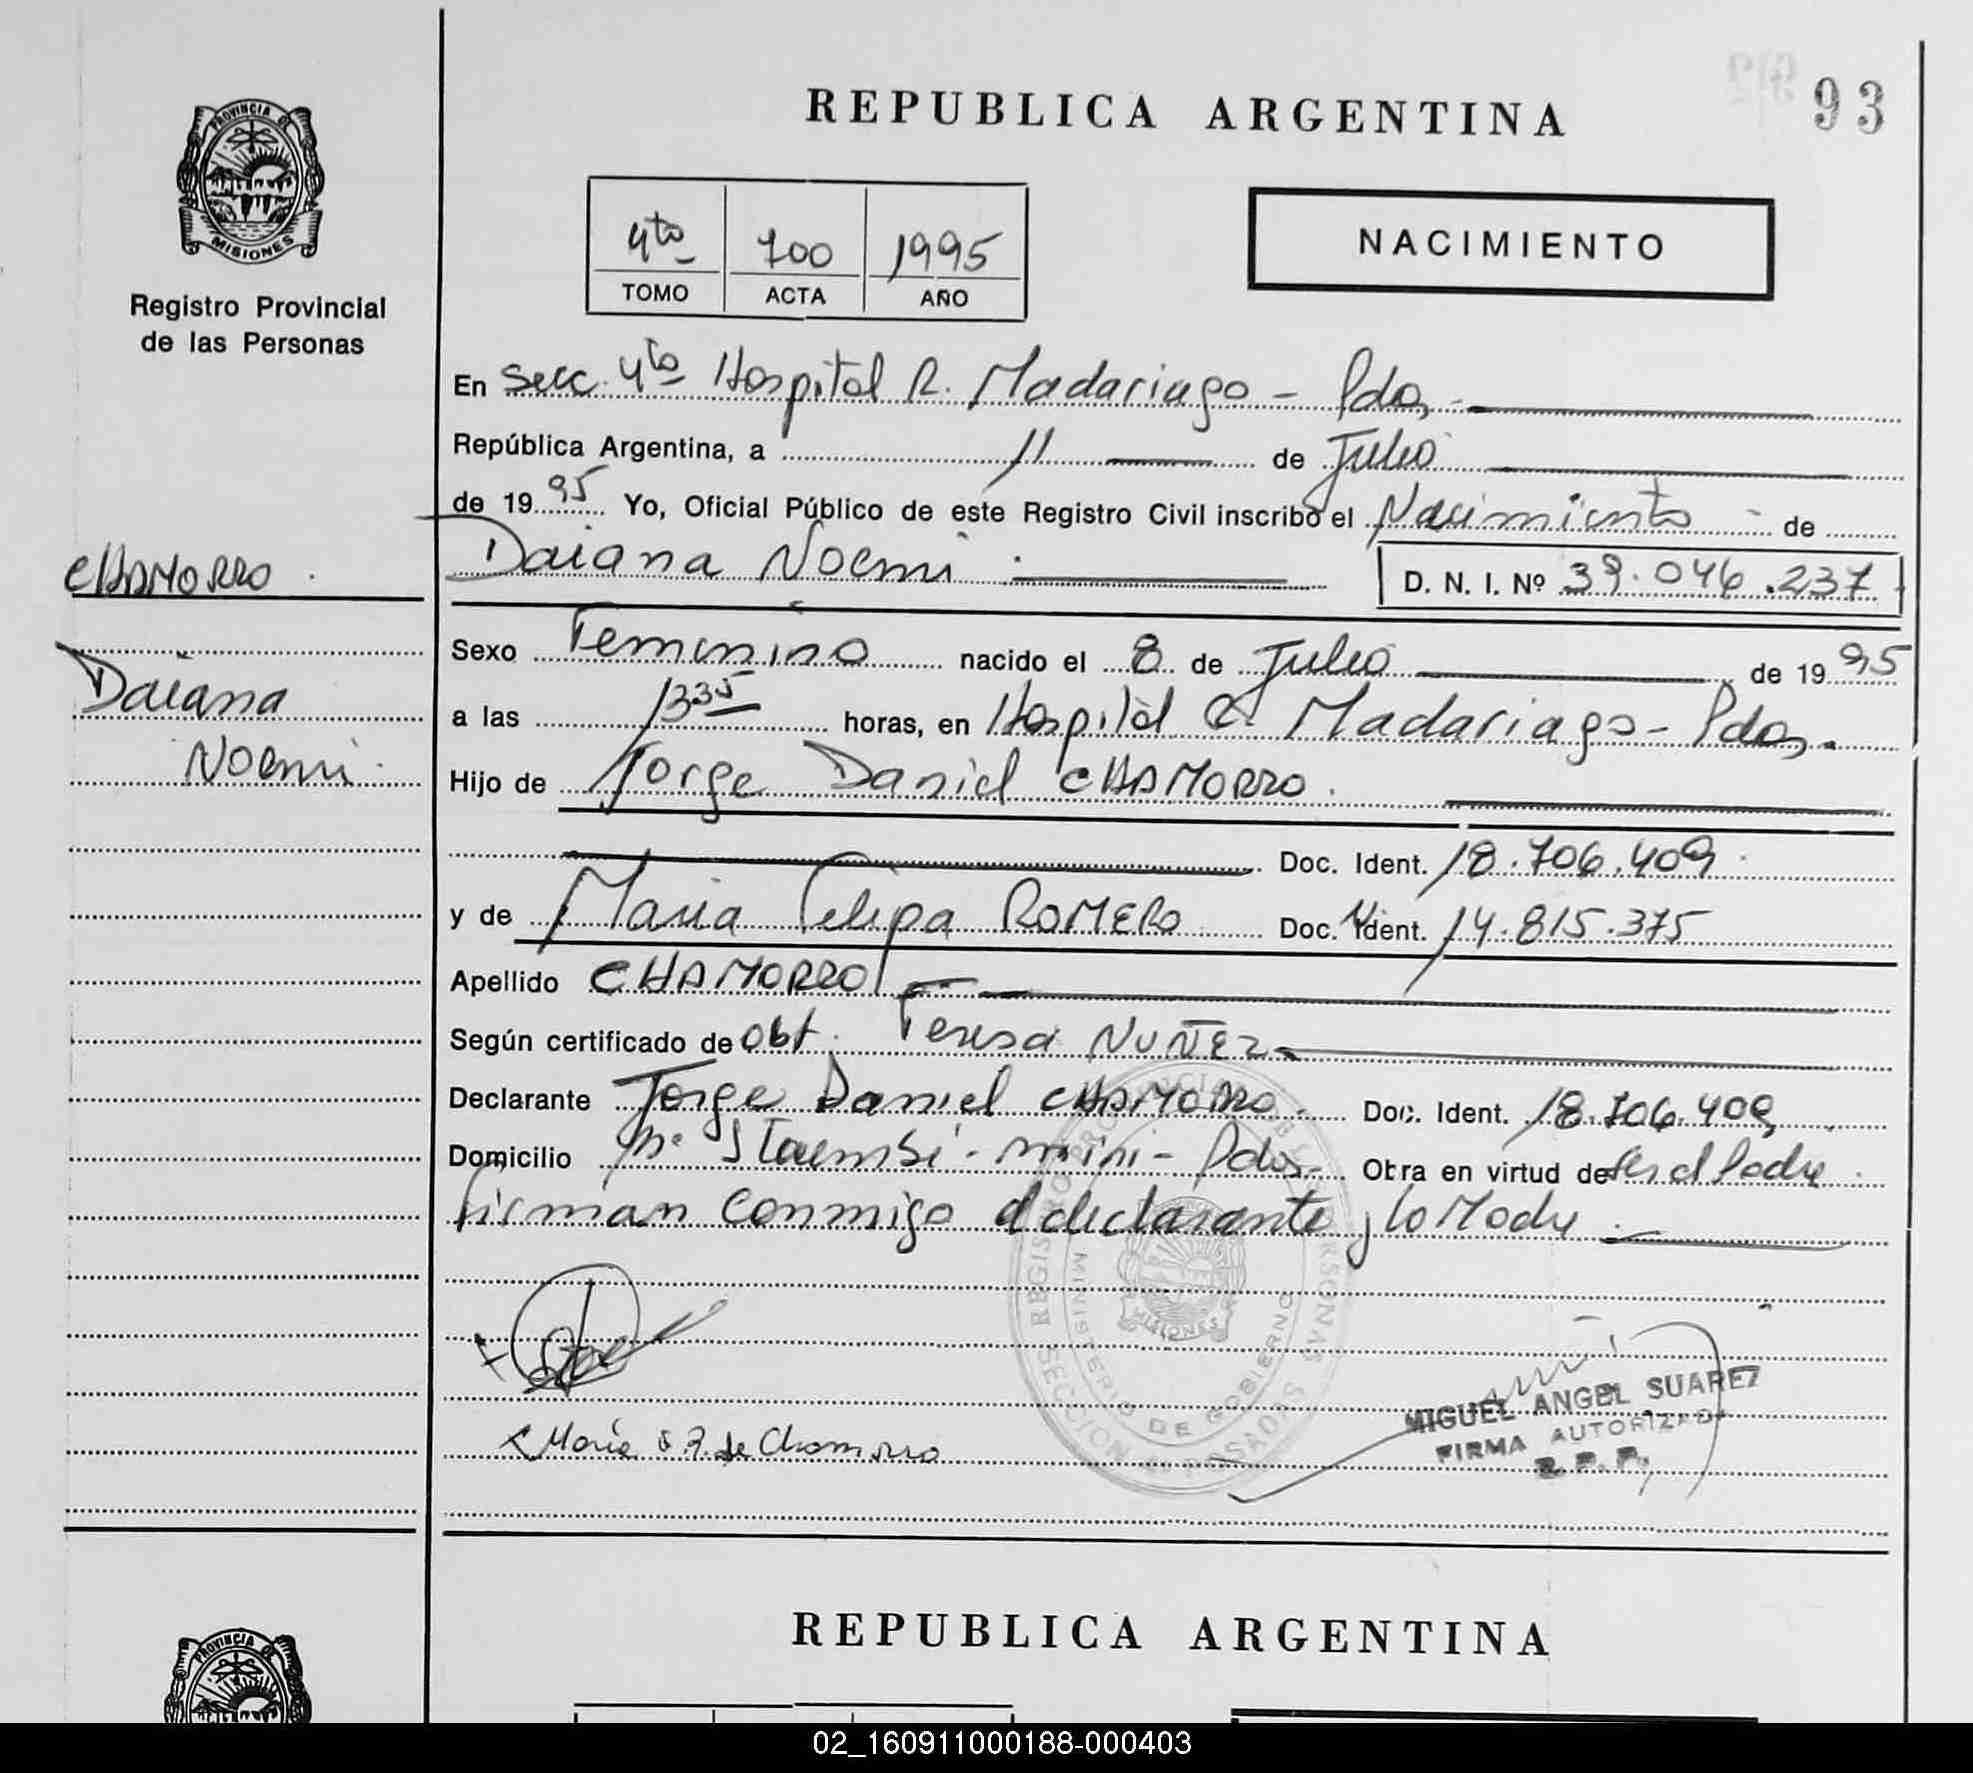 PROVINCIA DE
MISIONES
Registro Provincial
de las Personas
REPUBLICA ARGENTINA
93
4to 700 1995
TOMO ACTA AÑO
NACIMIENTO
En Secc. 4to Hospital R. Madariaga - Pdas -
República Argentina, a 11 de Julio
de 1995 Yo, Oficial Público de este Registro Civil inscribo el Nacimiento - de
Daiana Noemi D. N. I. Nº 39.046.237
CHAMORRO
Daiana
Noemi
Sexo Femenino nacido el 8 de Julio de 1995
a las 1335 horas, en Hospital R. Madariaga - Pdas.
Hijo de Jorge Daniel CHAMORRO.
Doc. Ident. 18.706.409
y de Maria Felipa ROMERO Doc. Ident. 14.815.375
Apellido CHAMORRO
Según certificado de Obt. Teresa NUÑEZ
Declarante Jorge Daniel CHAMORRO. Doc. Ident. 18.706.409
Domicilio Itaembé - mini - Pdas. Obra en virtud de ser el Padre.
firman conmigo el declarante y la Madre.
REGISTRO PROVINCIAL DE LAS PERSONAS
MINISTERIO DE GOBIERNO
MISIONES
SECCION 4ª POSADAS
Maria F. R. de Chamorro
MIGUEL ANGEL SUAREZ
FIRMA AUTORIZADA
R. P. P.
REPUBLICA ARGENTINA
PROVINCIA DE
02_160911000188-000403